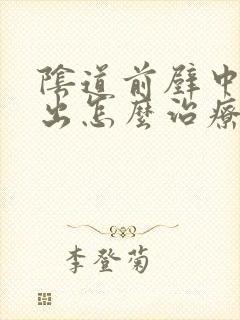 陰道前壁中
出怎麼治療
李登菊